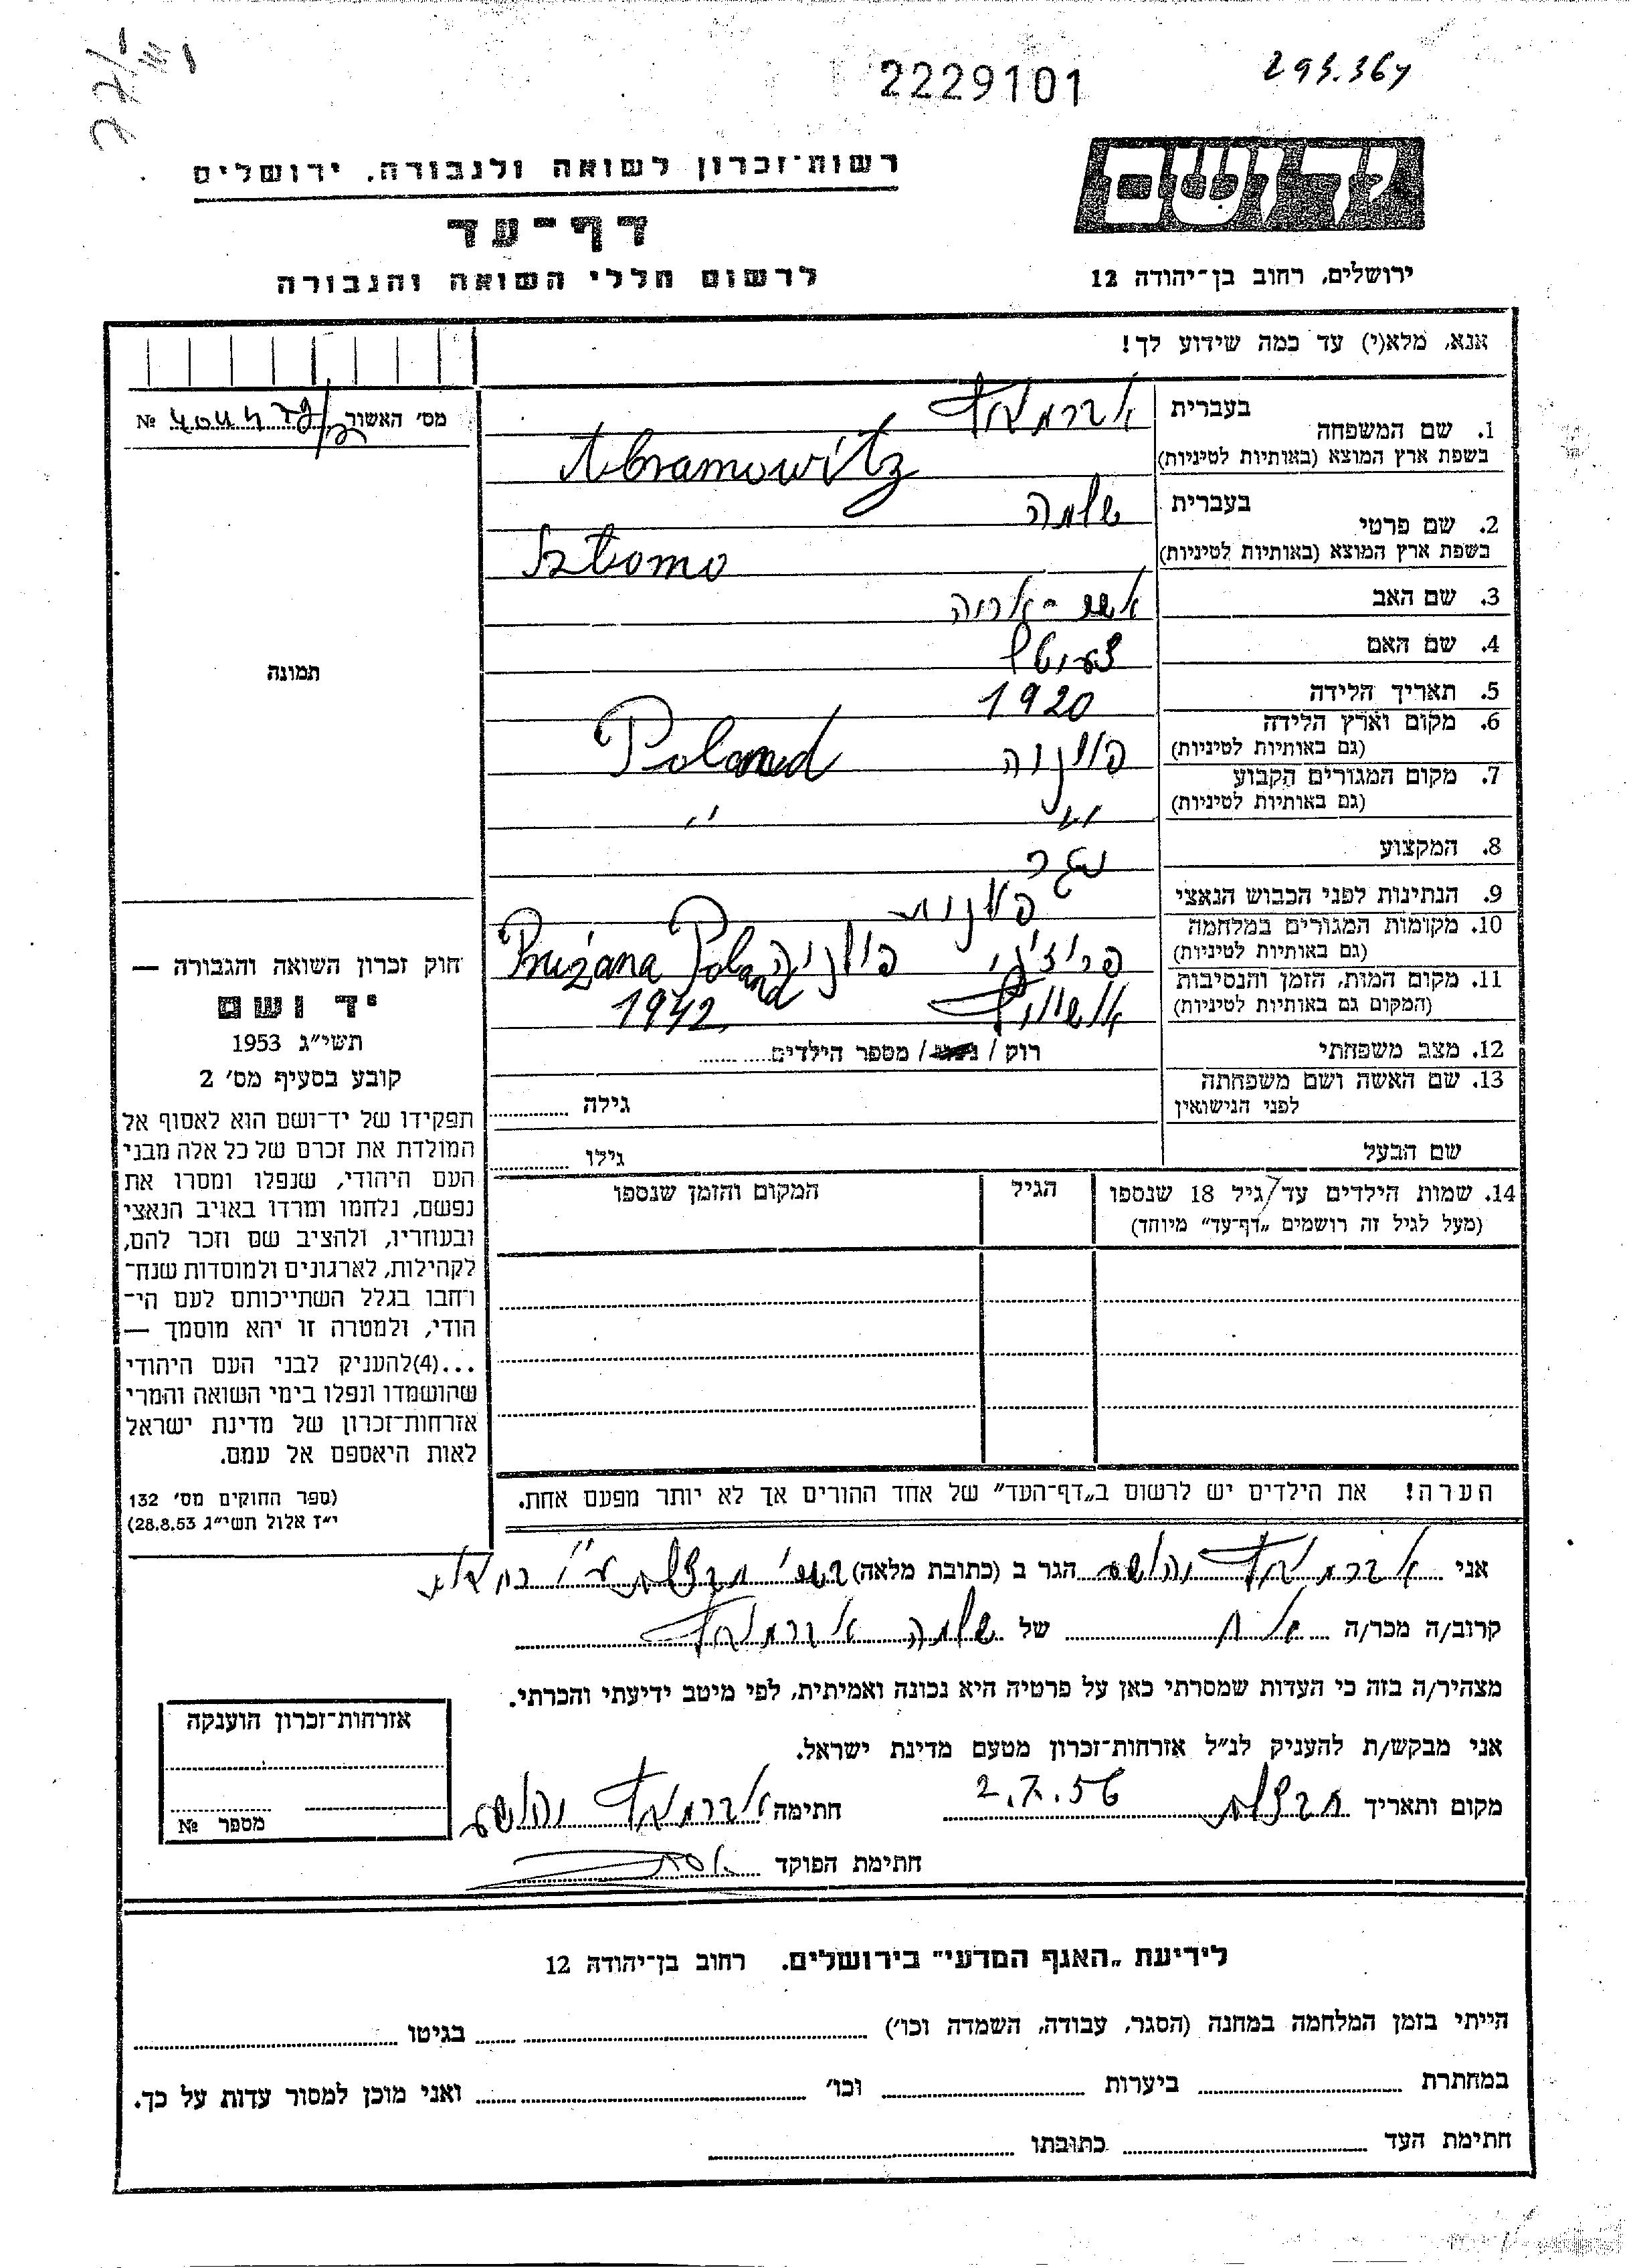 2229101
293.367
יד ושם
רשות־זכרון לשואה ולגבורה, ירושלים
דף־עד
לרשום חללי השואה והגבורה
ירושלים, רחוב בן־יהודה 12
אנא, מלא(י) עד כמה שידוע לך!
מס' האשור №
1. שם המשפחה
בעברית אברמוביץ
בשפת ארץ המוצא (באותיות לטיניות) Abramowitz
2. שם פרטי
בעברית שלמה
בשפת ארץ המוצא (באותיות לטיניות) Szlomo
3. שם האב אשר - אריה
4. שם האם
5. תאריך הלידה 1920
6. מקום וארץ הלידה
(גם באותיות לטיניות) פולניה Poland
7. מקום המגורים הקבוע
(גם באותיות לטיניות) " "
8. המקצוע נגר
9. הנתינות לפני הכבוש הנאצי פולנית
10. מקומות המגורים במלחמה
(גם באותיות לטיניות) פולניה Prużana Poland
11. מקום המות, הזמן והנסיבות
(המקום גם באותיות לטיניות) אושוויץ 1942
12. מצב משפחתי רוק / נשוי / מספר הילדים
13. שם האשה ושם משפחתה
לפני הנישואין גילה
שם הבעל גילו
14. שמות הילדים עד גיל 18 שנספו
(מעל לגיל זה רושמים „דף־עד" מיוחד)
הגיל
המקום והזמן שנספו
הערה! את הילדים יש לרשום ב„דף־העד" של אחד ההורים אך לא יותר מפעם אחת.
תמונה
חוק זכרון השואה והגבורה —
יד ושם
תשי"ג 1953
קובע בסעיף מס' 2
תפקידו של יד־ושם הוא לאסוף אל
המולדת את זכרם של כל אלה מבני
העם היהודי, שנפלו ומסרו את
נפשם, נלחמו ומרדו באויב הנאצי
ובעוזריו, ולהציב שם וזכר להם,
לקהילות, לארגונים ולמוסדות שנח־
רבו בגלל השתייכותם לעם הי־
הודי, ולמטרה זו יהא מוסמך —
...(4)להעניק לבני העם היהודי
שהושמדו ונפלו בימי השואה והמרי
אזרחות־זכרון של מדינת ישראל
לאות היאספם אל עמם.
(ספר החוקים מס' 132
י"ז אלול תשי"ג 28.8.53)
אני אברמוביץ יהושע הגר ב (כתובת מלאה) חבצלת ע"י רחובות
קרוב/ה מכר/ה אח של שלמה אברמוביץ
מצהיר/ה בזה כי העדות שמסרתי כאן על פרטיה היא נכונה ואמיתית, לפי מיטב ידיעתי והכרתי.
אני מבקש/ת להעניק לנ"ל אזרחות־זכרון מטעם מדינת ישראל.
מקום ותאריך חבצלת 2.7.56 חתימה אברמוביץ יהושע
חתימת הפוקד
אזרחות־זכרון הוענקה
מספר №
לידיעת „האגף המדעי" בירושלים. רחוב בן־יהודה 12
הייתי בזמן המלחמה במחנה (הסגר, עבודה, השמדה וכו') בגיטו
במחתרת ביערות וכו' ואני מוכן למסור עדות על כך.
חתימת העד כתובתו